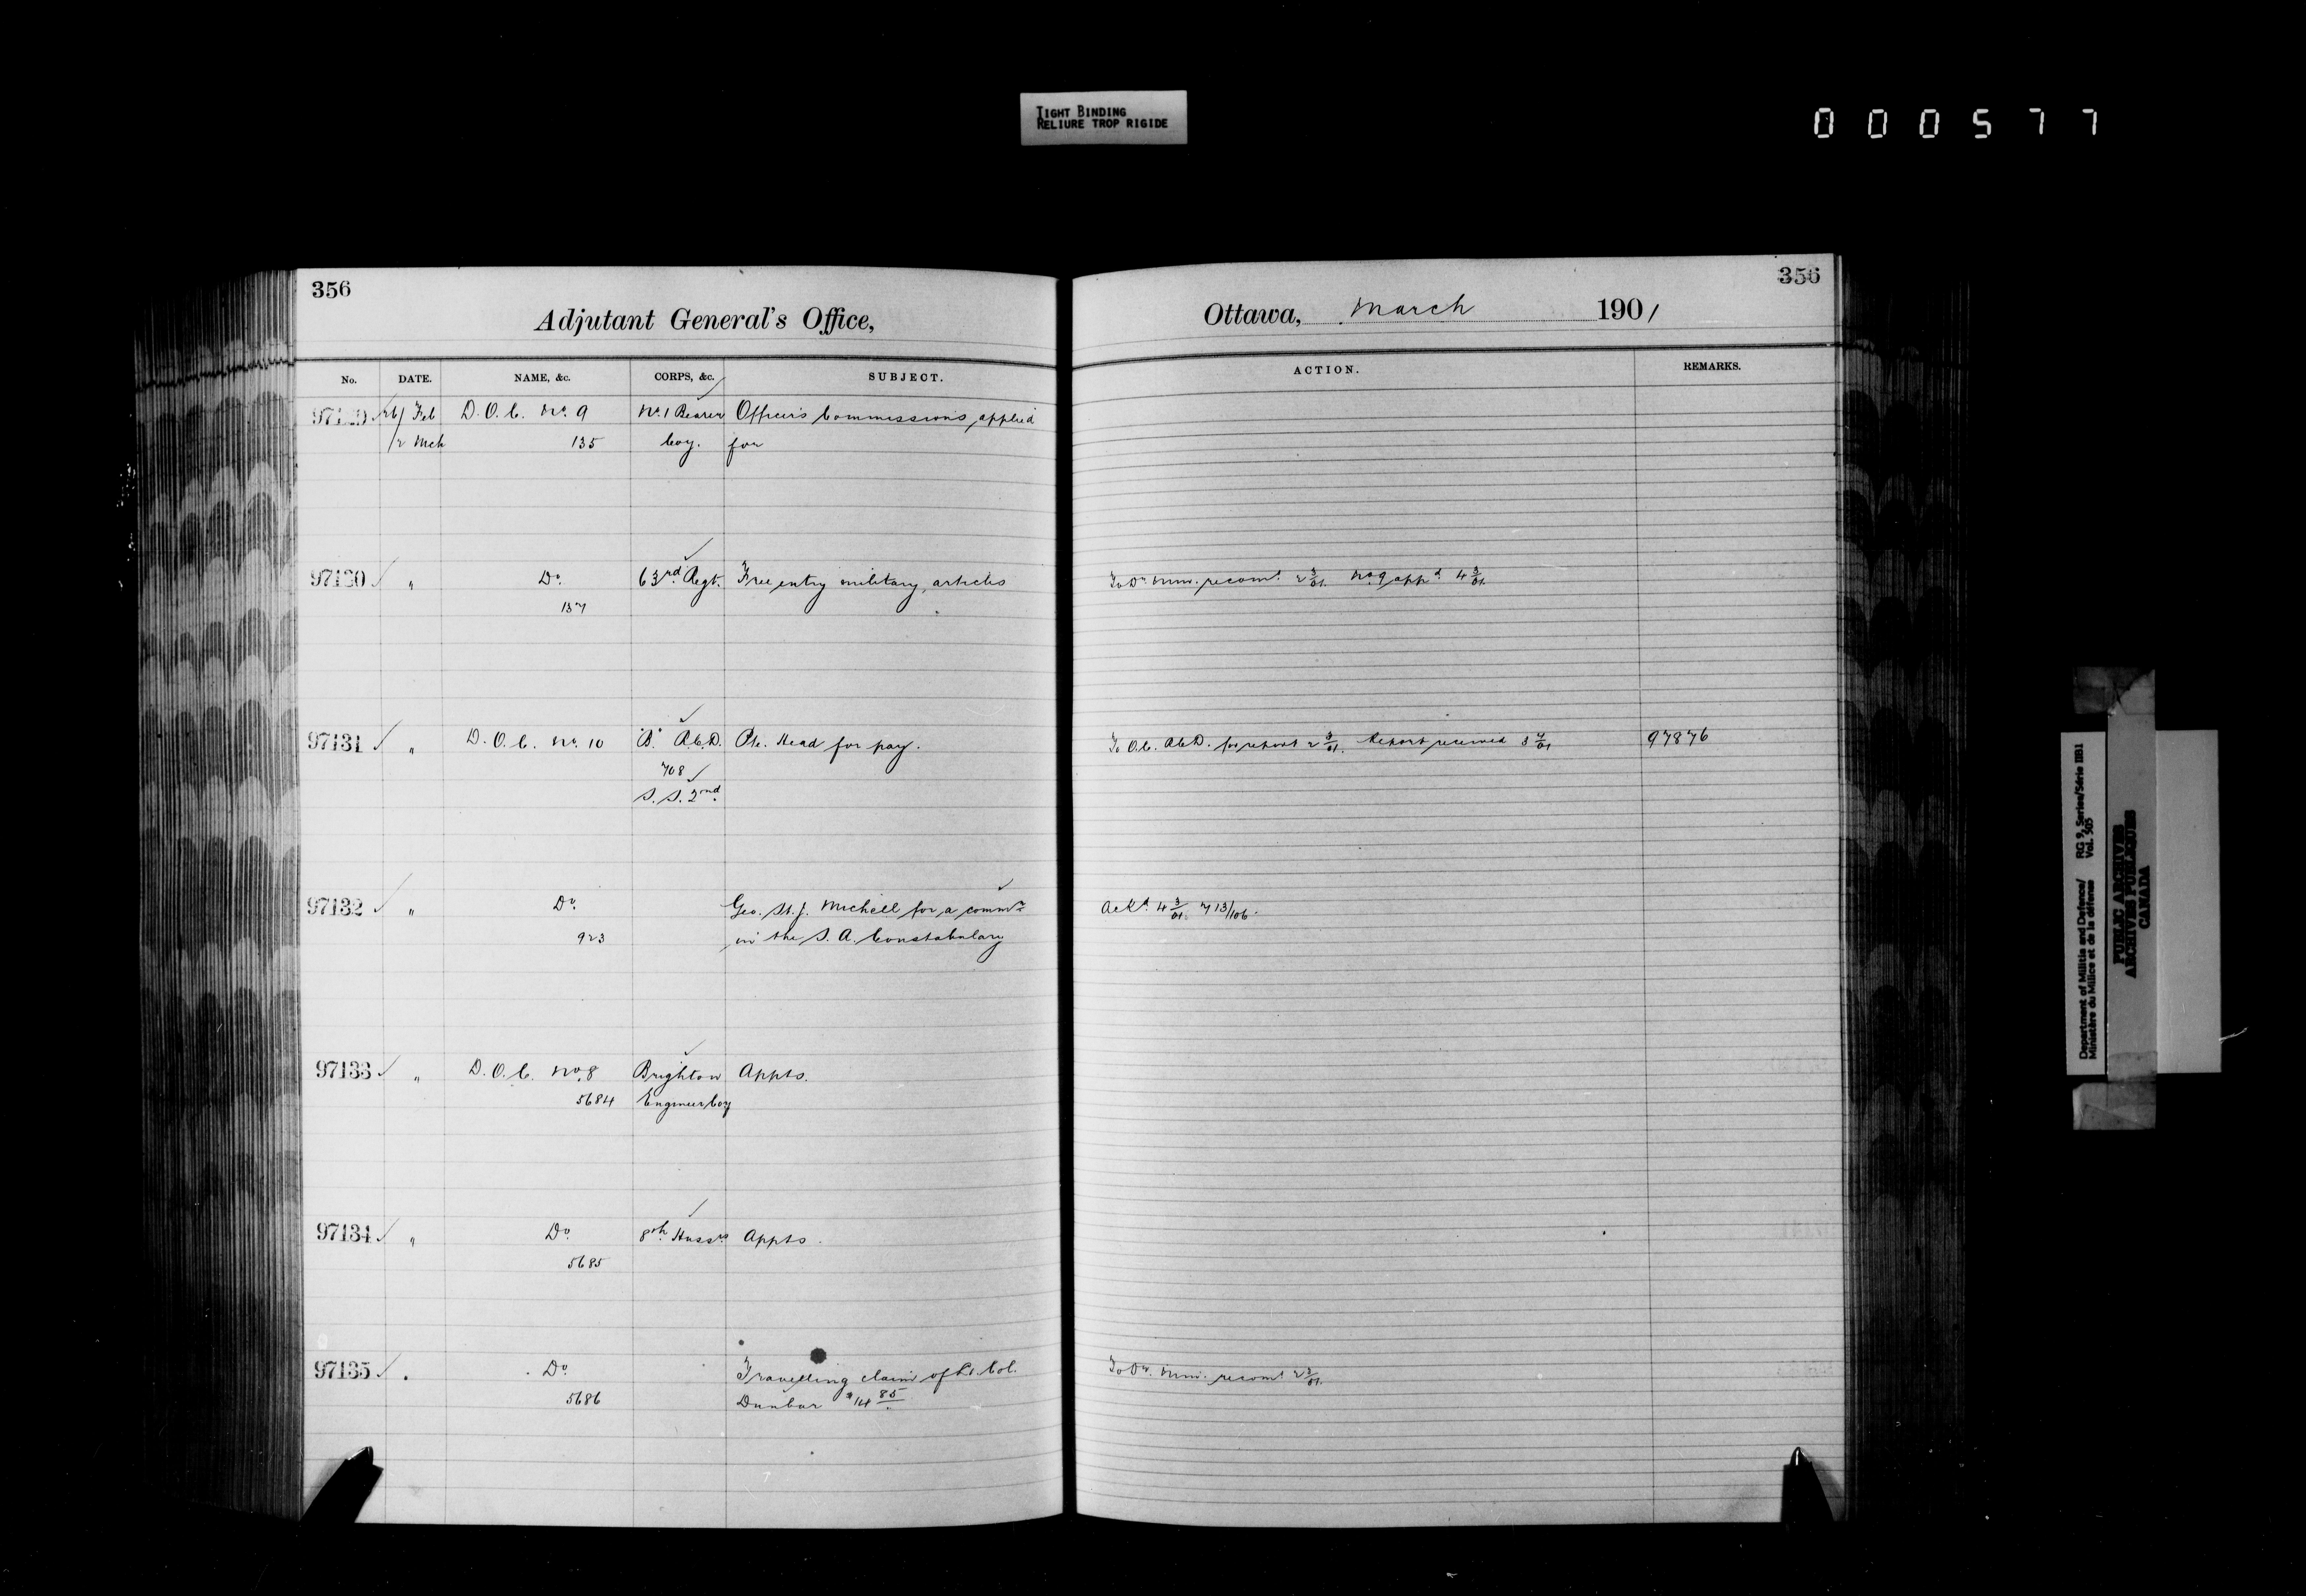 TIGHT BINDING
RELIURE TROP RIGIDE
000577
356
Adjutant General's Office,
No. DATE. NAME, &c. CORPS, &c. SUBJECT.
97129 26 Feb D.O.C. No. 9 No. 1 Bearer Officers Commissions, applied
/2 Mch 135 Coy. for
97130 " Do. 63rd Regt. Free entry military articles
137
97131 " D.O.C. No. 10 "B" R.C.D. Pte. Head for pay.
708
S.S. 2nd
97132 " Do. Geo. St. J. Michell for a commn
923 in the S.A. Constabulary
97133 " D.O.C. No. 8 Brighton Appts.
5684 Engineer Coy
97134 " Do. 8th Hussrs Appts.
5685
97135 . Do. Travelling claim of Lt. Col.
5686 Dunbar $14 85
356
Ottawa, March 1901
ACTION. REMARKS.
To Dr. Minr. recomd. 2 3/01. No. 9 appd. 4 3/01.
To O.C. R.C.D. for report 2 3/01. Report received 3 4/01 97876
Ackd. 4 3/01. 713/106.
To Dr. Minr. recomd. 2 3/01.
Department of Militia and Defence/ RG 9, Series/Série IIB1
Ministère du Milice et de la défense Vol. 505
PUBLIC ARCHIVES
ARCHIVES PUBLIQUES
CANADA